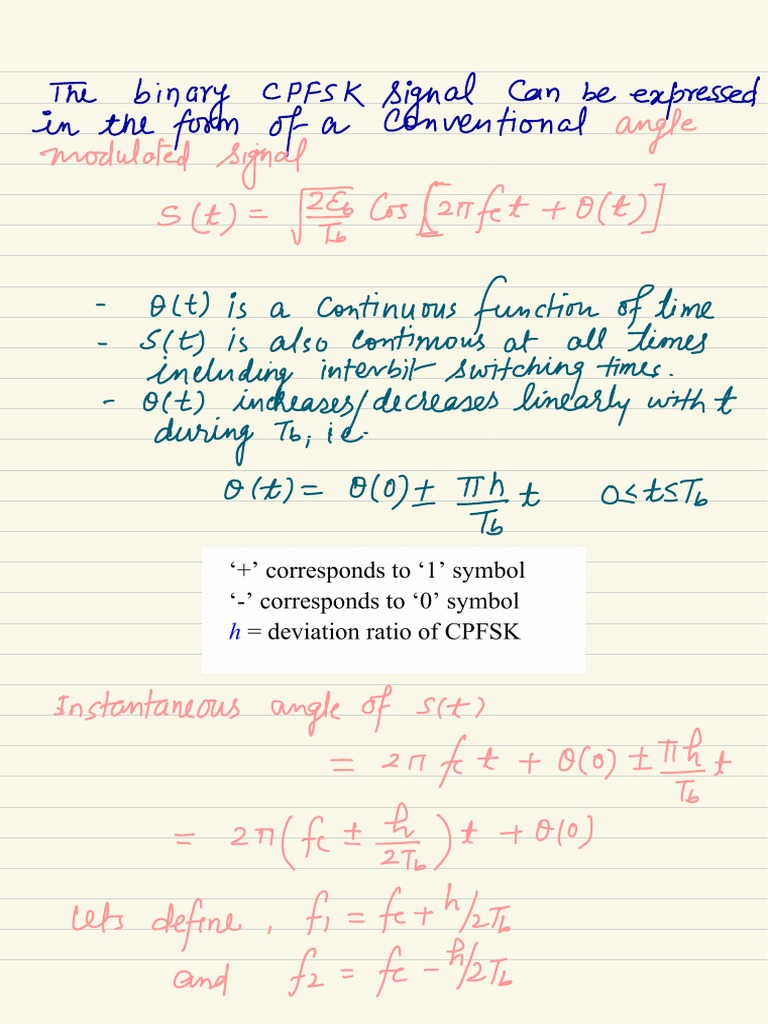 The binary CPFSK signal Can be expressed
in the form of a Conventional angle
modulated signal
S(t) = √(2Ɛb/Tb) Cos [2π fc t + θ(t)]
- θ(t) is a continuous function of time
- S(t) is also continuous at all times
including interbit switching times.
- θ(t) increases/decreases linearly with t
during Tb, i.e.
θ(t) = θ(0) ± πh/Tb t 0≤t≤Tb
‘+’ corresponds to ‘1’ symbol
‘-’ corresponds to ‘0’ symbol
h = deviation ratio of CPFSK
Instantaneous angle of S(t)
= 2π fc t + θ(0) ± πh/Tb t
= 2π(fc ± h/2Tb) t + θ(0)
Lets define, f1 = fc + h/2Tb
and f2 = fc - h/2Tb